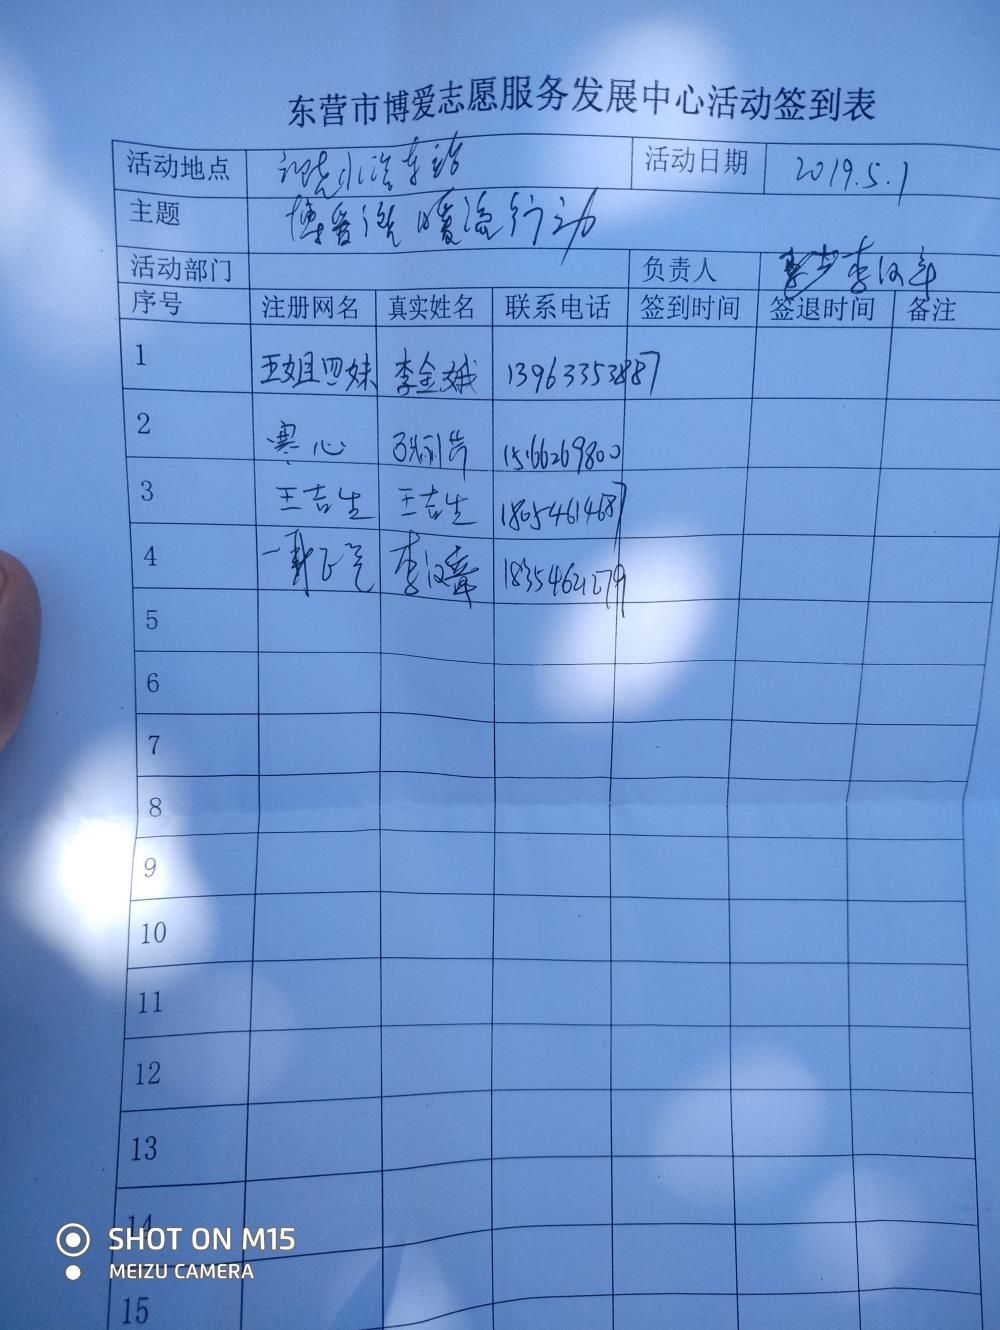 东营市博爱志愿服务发展中心活动签到表
活动地点 汽车站 活动日期 2019.5.1
主题 博爱 暖流行动
活动部门 负责人 李汉章
序号 注册网名 真实姓名 联系电话 签到时间 签退时间 备注
1 五姐四妹 李金娥
2 寒心 1566269800
3 王吉生 王吉生 18054614687
4 一身正气 李汉章
5
6
7
8
9
10
11
12
13
14
15
SHOT ON M15
MEIZU CAMERA